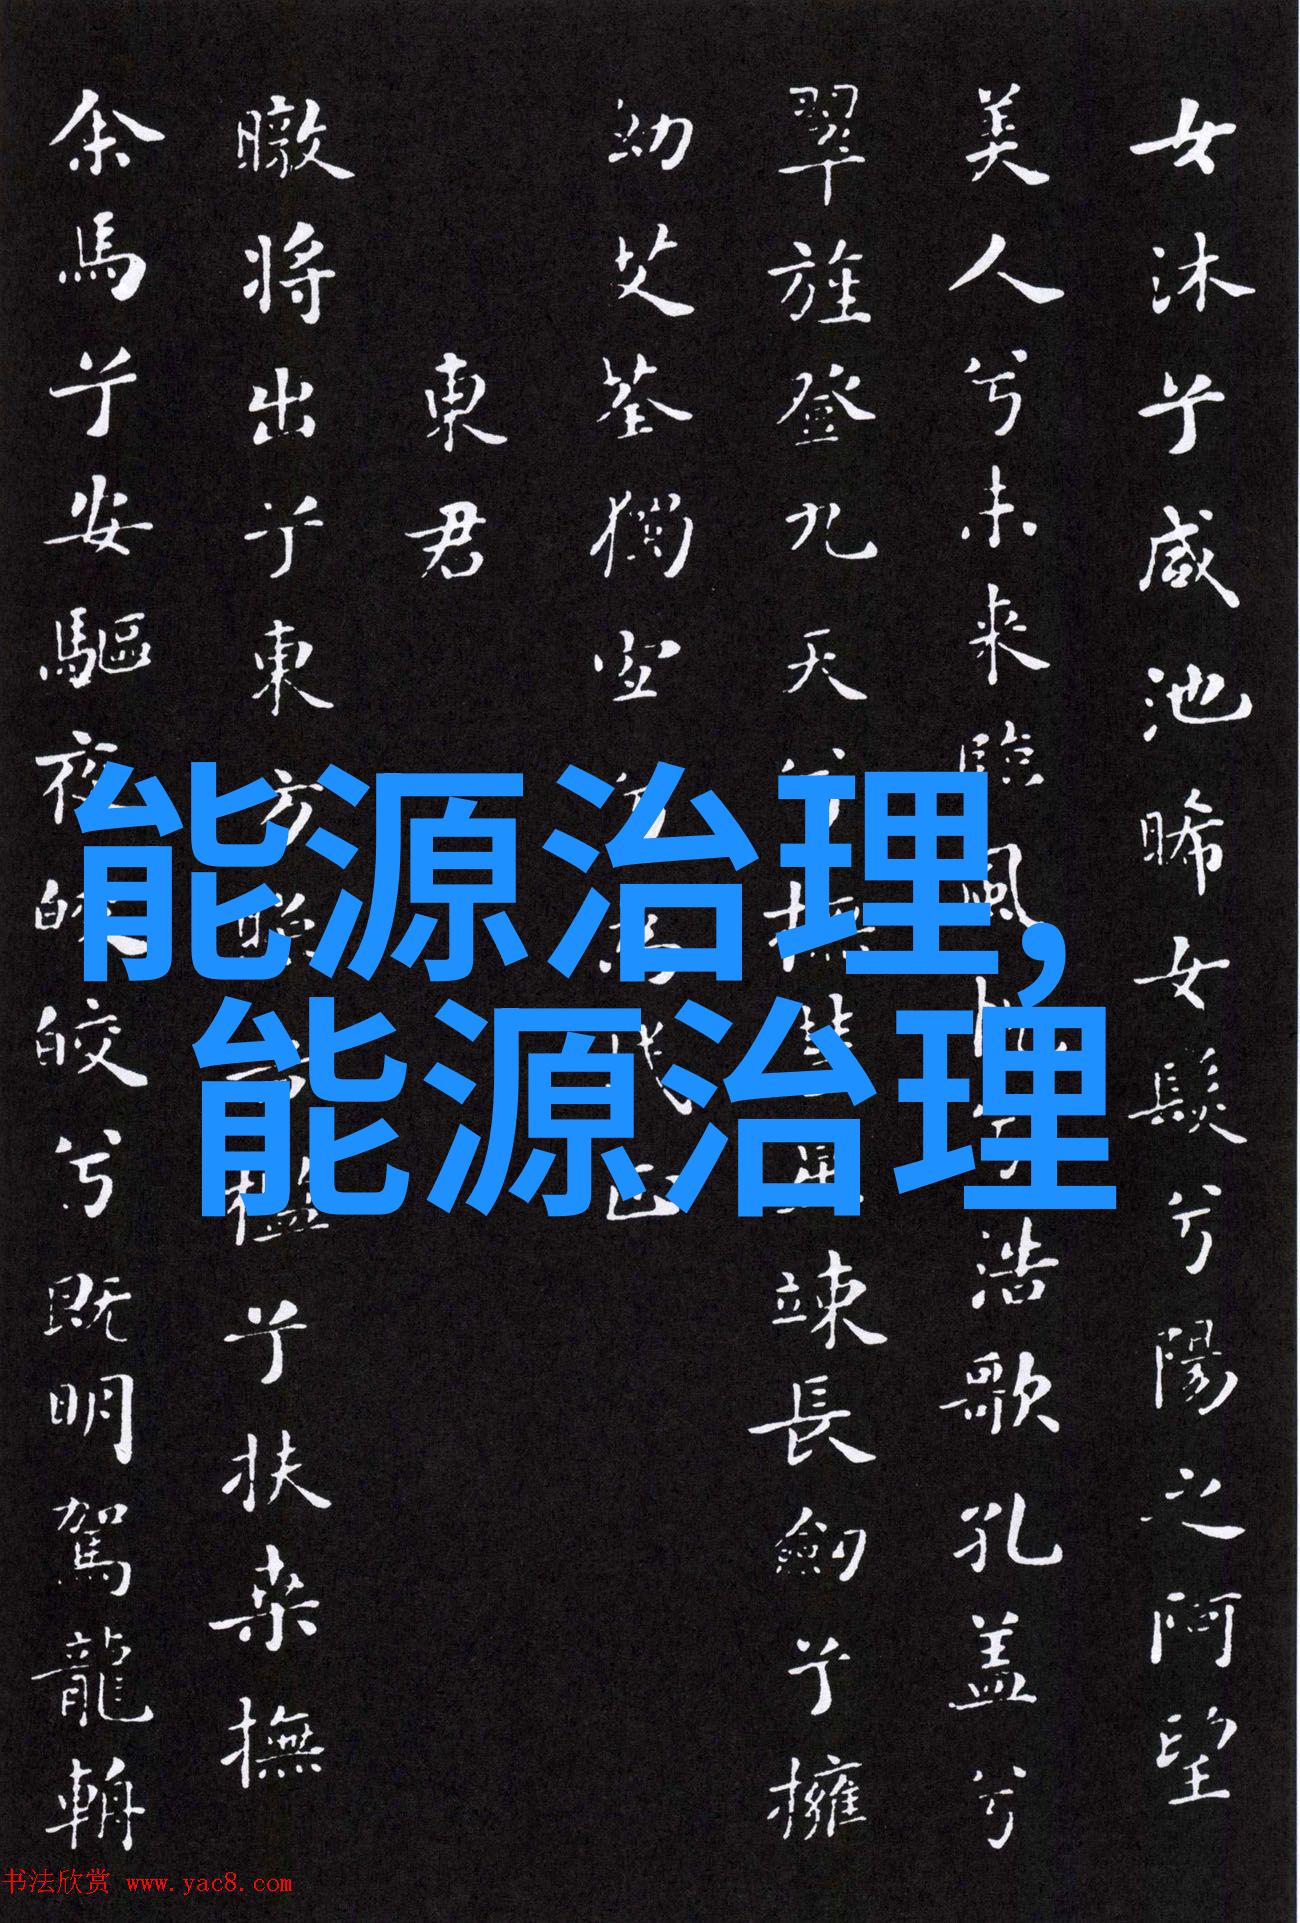 女沐兮咸池晞女髮兮陽之阿望
美人兮未来臨風兮浩歌孔盖兮
翠旌登九天兮撫竦長劍兮擁
幼艾荃獨宜兮
東君
暾將出兮東方檻兮扶桑撫
余馬兮安驅夜皎皎兮既明駕龍輈
能源治理,
能源治理
书法欣赏 www.yac8.com